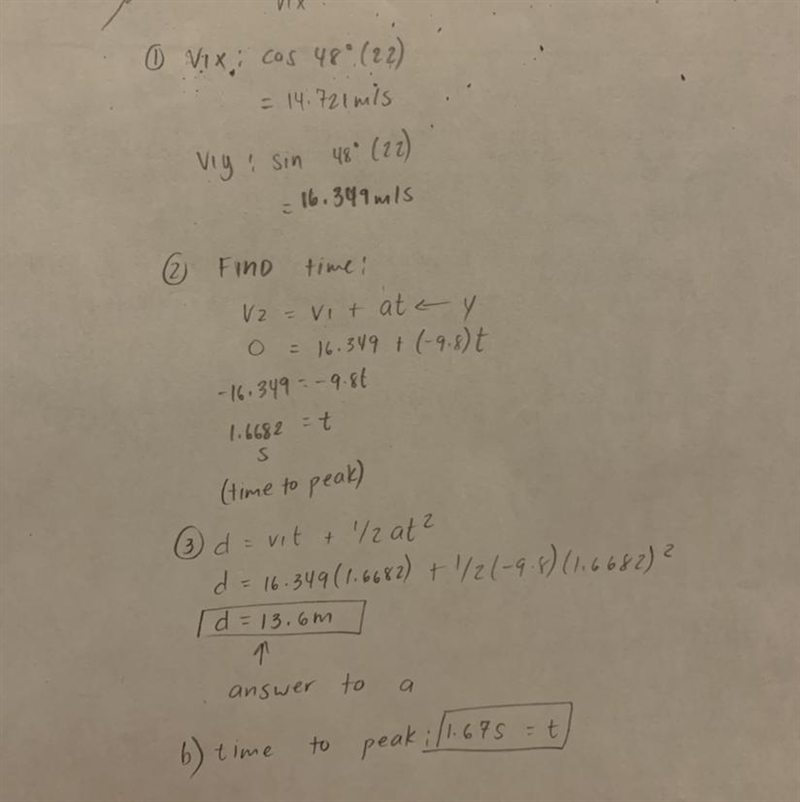 ① V1x: cos 48° (22)
= 14.721 m/s
V1y: sin 48° (22)
= 16.349 m/s
② FIND time:
V2 = V1 + at ← y
0 = 16.349 + (-9.8)t
-16.349 = -9.8t
1.6682 = t
s
(time to peak)
③ d = v1t + 1/2 at²
d = 16.349(1.6682) + 1/2(-9.8)(1.6682)²
d = 13.6m
↑
answer to a
b) time to peak: 1.67s = t